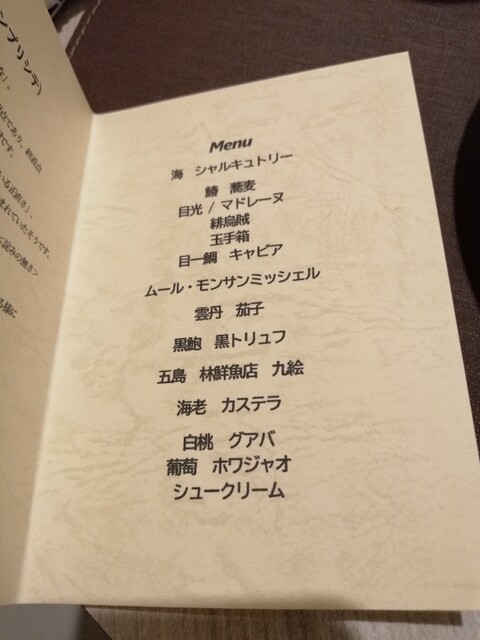 ンプリシテ)
Menu
海 シャルキュトリー
鰆 蕎麦
目光 / マドレーヌ
緋烏賊
玉手箱
目一鯛 キャビア
ムール・モンサンミッシェル
雲丹 茄子
黒鮑 黒トリュフ
五島 林鮮魚店 九絵
海老 カステラ
白桃 グアバ
葡萄 ホワジャオ
シュークリーム
点であり、終着点
です。
いる正直さ」。
まれていたそうです。
淀みの無さ>
る様に